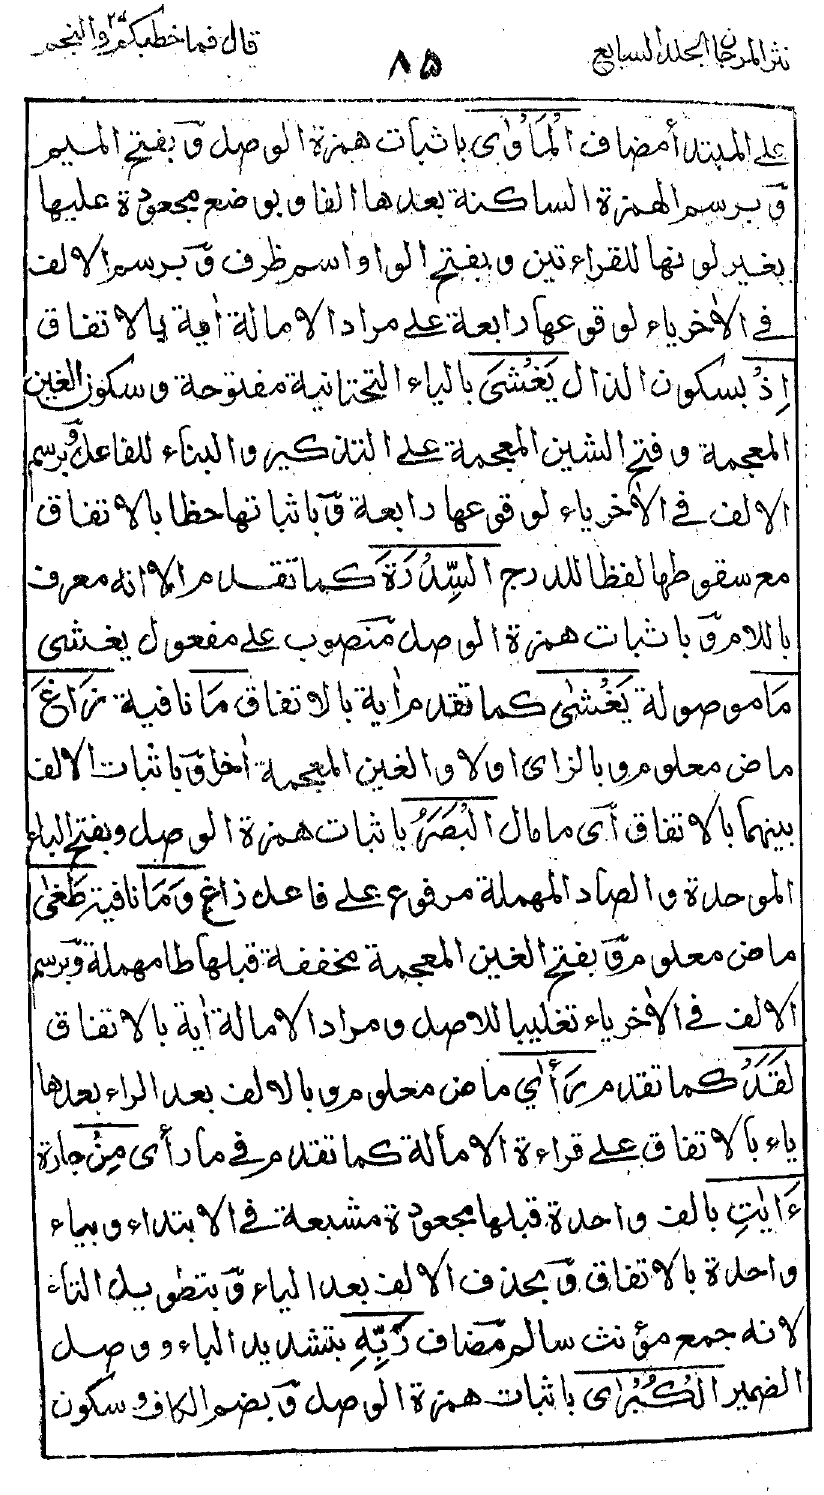 نثر المرجان الجلد السابع
٨٥
قال فما خطبكم ٢٧ والنجم
على المبتدأ مضاف الْمَأْوٰى باثبات همزة الوصل وٓ بفتح الميم
وٓ برسم الهمزة الساكنة بعدها الفا و بوضع مجعودة عليها
بغير لونها للقراءتين و بفتح الواو اسم ظرف وٓ برسم الالف
في الاٰخر ياء لوقوعها رابعة على مراد الامالة اٰية بالاتفاق
اِذْ بسكون الذال يَغْشَى بالياء التحتانية مفتوحة و سكون الغين
المعجمة و فتح الشين المعجمة على التذكير و البناء للفاعل وٓ برسم
الالف في الاٰخر ياء لوقوعها رابعة وٓ باثباتها خطا بالاتفاق
مع سقوطها لفظا للدرج السِّدْرَةَ كما تقدم الا انه معرف
باللام وٓ باثبات همزة الوصل منصوب على مفعول يغشى
مَا موصولة يَغْشٰى كما تقدم اٰية بالاتفاق مَا نافية زَاغَ
ماض معلوم و بالزاى اولا و الغين المعجمة اٰخرا وٓ باثبات الالف
بينهما بالاتفاق اَى ما مال الْبَصَرُ باثبات همزة الوصل و بفتح الباء
الموحدة و الصاد المهملة مرفوع على فاعل زاغ وَمَا نافية طَغٰى
ماض معلوم وٓ بفتح الغين المعجمة مخففة قبلها طا مهملة وٓ برسم
الالف في الاٰخر ياء تغليبا للاصل و مراد الامالة اٰية بالاتفاق
لَقَدْ كما تقدم رَأٰى ماض معلوم و بالالف بعد الراء بعدها
ياء بالاتفاق على قراءة الامالة كما تقدم في ما رأى مِنْ جارة
ءَايٰتِ بالف واحدة قبلها مجعودة مشبعة في الابتداء و بياء
واحدة بالاتفاق وٓ بحذف الالف بعد الياء وٓ بتطويل التاء
لانه جمع مؤنث سالم مضاف رَبِّهِ بتشديد الباء و وصل
الضمير الْكُبْرٰى باثبات همزة الوصل وٓ بضم الكاف و سكون